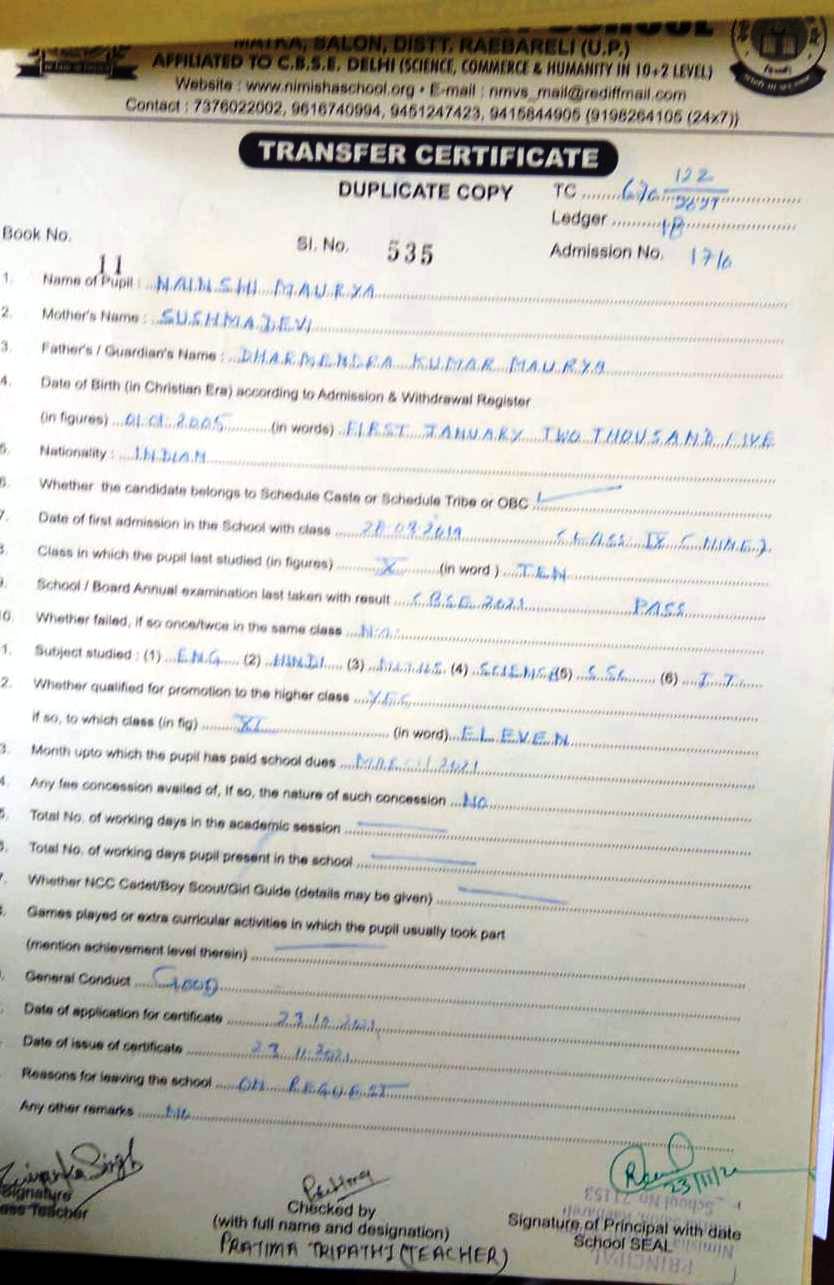 SCHOOL
MATKA, SALON, DISTT. RAEBARELI (U.P.)
AFFILIATED TO C.B.S.E. DELHI (SCIENCE, COMMERCE & HUMANITY IN 10+2 LEVEL)
Website : www.nimishaschool.org • E-mail : nmvs_mail@rediffmail.com
Contact : 7376022002, 9616740994, 9451247423, 9415844905 (9198264105 (24x7))
TRANSFER CERTIFICATE
DUPLICATE COPY TC
Ledger 18
Book No. 11 Sl. No. 535 Admission No. 1716
1. Name of Pupil : NAINSHI MAURYA
2. Mother's Name : SUSHMA DEVI
3. Father's / Guardian's Name : DHARMENDRA KUMAR MAURYA
4. Date of Birth (in Christian Era) according to Admission & Withdrawal Register
(in figures) 01.01.2005 (in words) FIRST JANUARY TWO THOUSAND FIVE
5. Nationality : INDIAN
6. Whether the candidate belongs to Schedule Caste or Schedule Tribe or OBC
7. Date of first admission in the School with class CLASS IX (NINE)
8. Class in which the pupil last studied (in figures) X (in word ) TEN
9. School / Board Annual examination last taken with result CBSE 2021 PASS
10. Whether failed, if so once/twce in the same class No
1. Subject studied : (1) ENG (2) HINDI (3) MATHS (4) SCIENCE (5) S.SC. (6) I.T.
2. Whether qualified for promotion to the higher class YES
if so, to which class (in fig) XI (in word) ELEVEN
3. Month upto which the pupil has paid school dues MARCH 2021
4. Any fee concession availed of, If so, the nature of such concession NO
5. Total No. of working days in the academic session
6. Total No. of working days pupil present in the school
7. Whether NCC Cadet/Boy Scout/Girl Guide (details may be given)
8. Games played or extra curricular activities in which the pupil usually took part
(mention achievement level therein)
General Conduct GOOD
Date of application for certificate 23.10.2021
Date of issue of certificate 23.11.2021
Reasons for leaving the school ON REQUEST
Any other remarks NO
Priyanka Singh
Signature
Class Teacher
Checked by
(with full name and designation)
PRATIMA TRIPATHI (TEACHER)
23/11/21
Signature of Principal with date
School SEAL
School No. 71153
PRINCIPAL